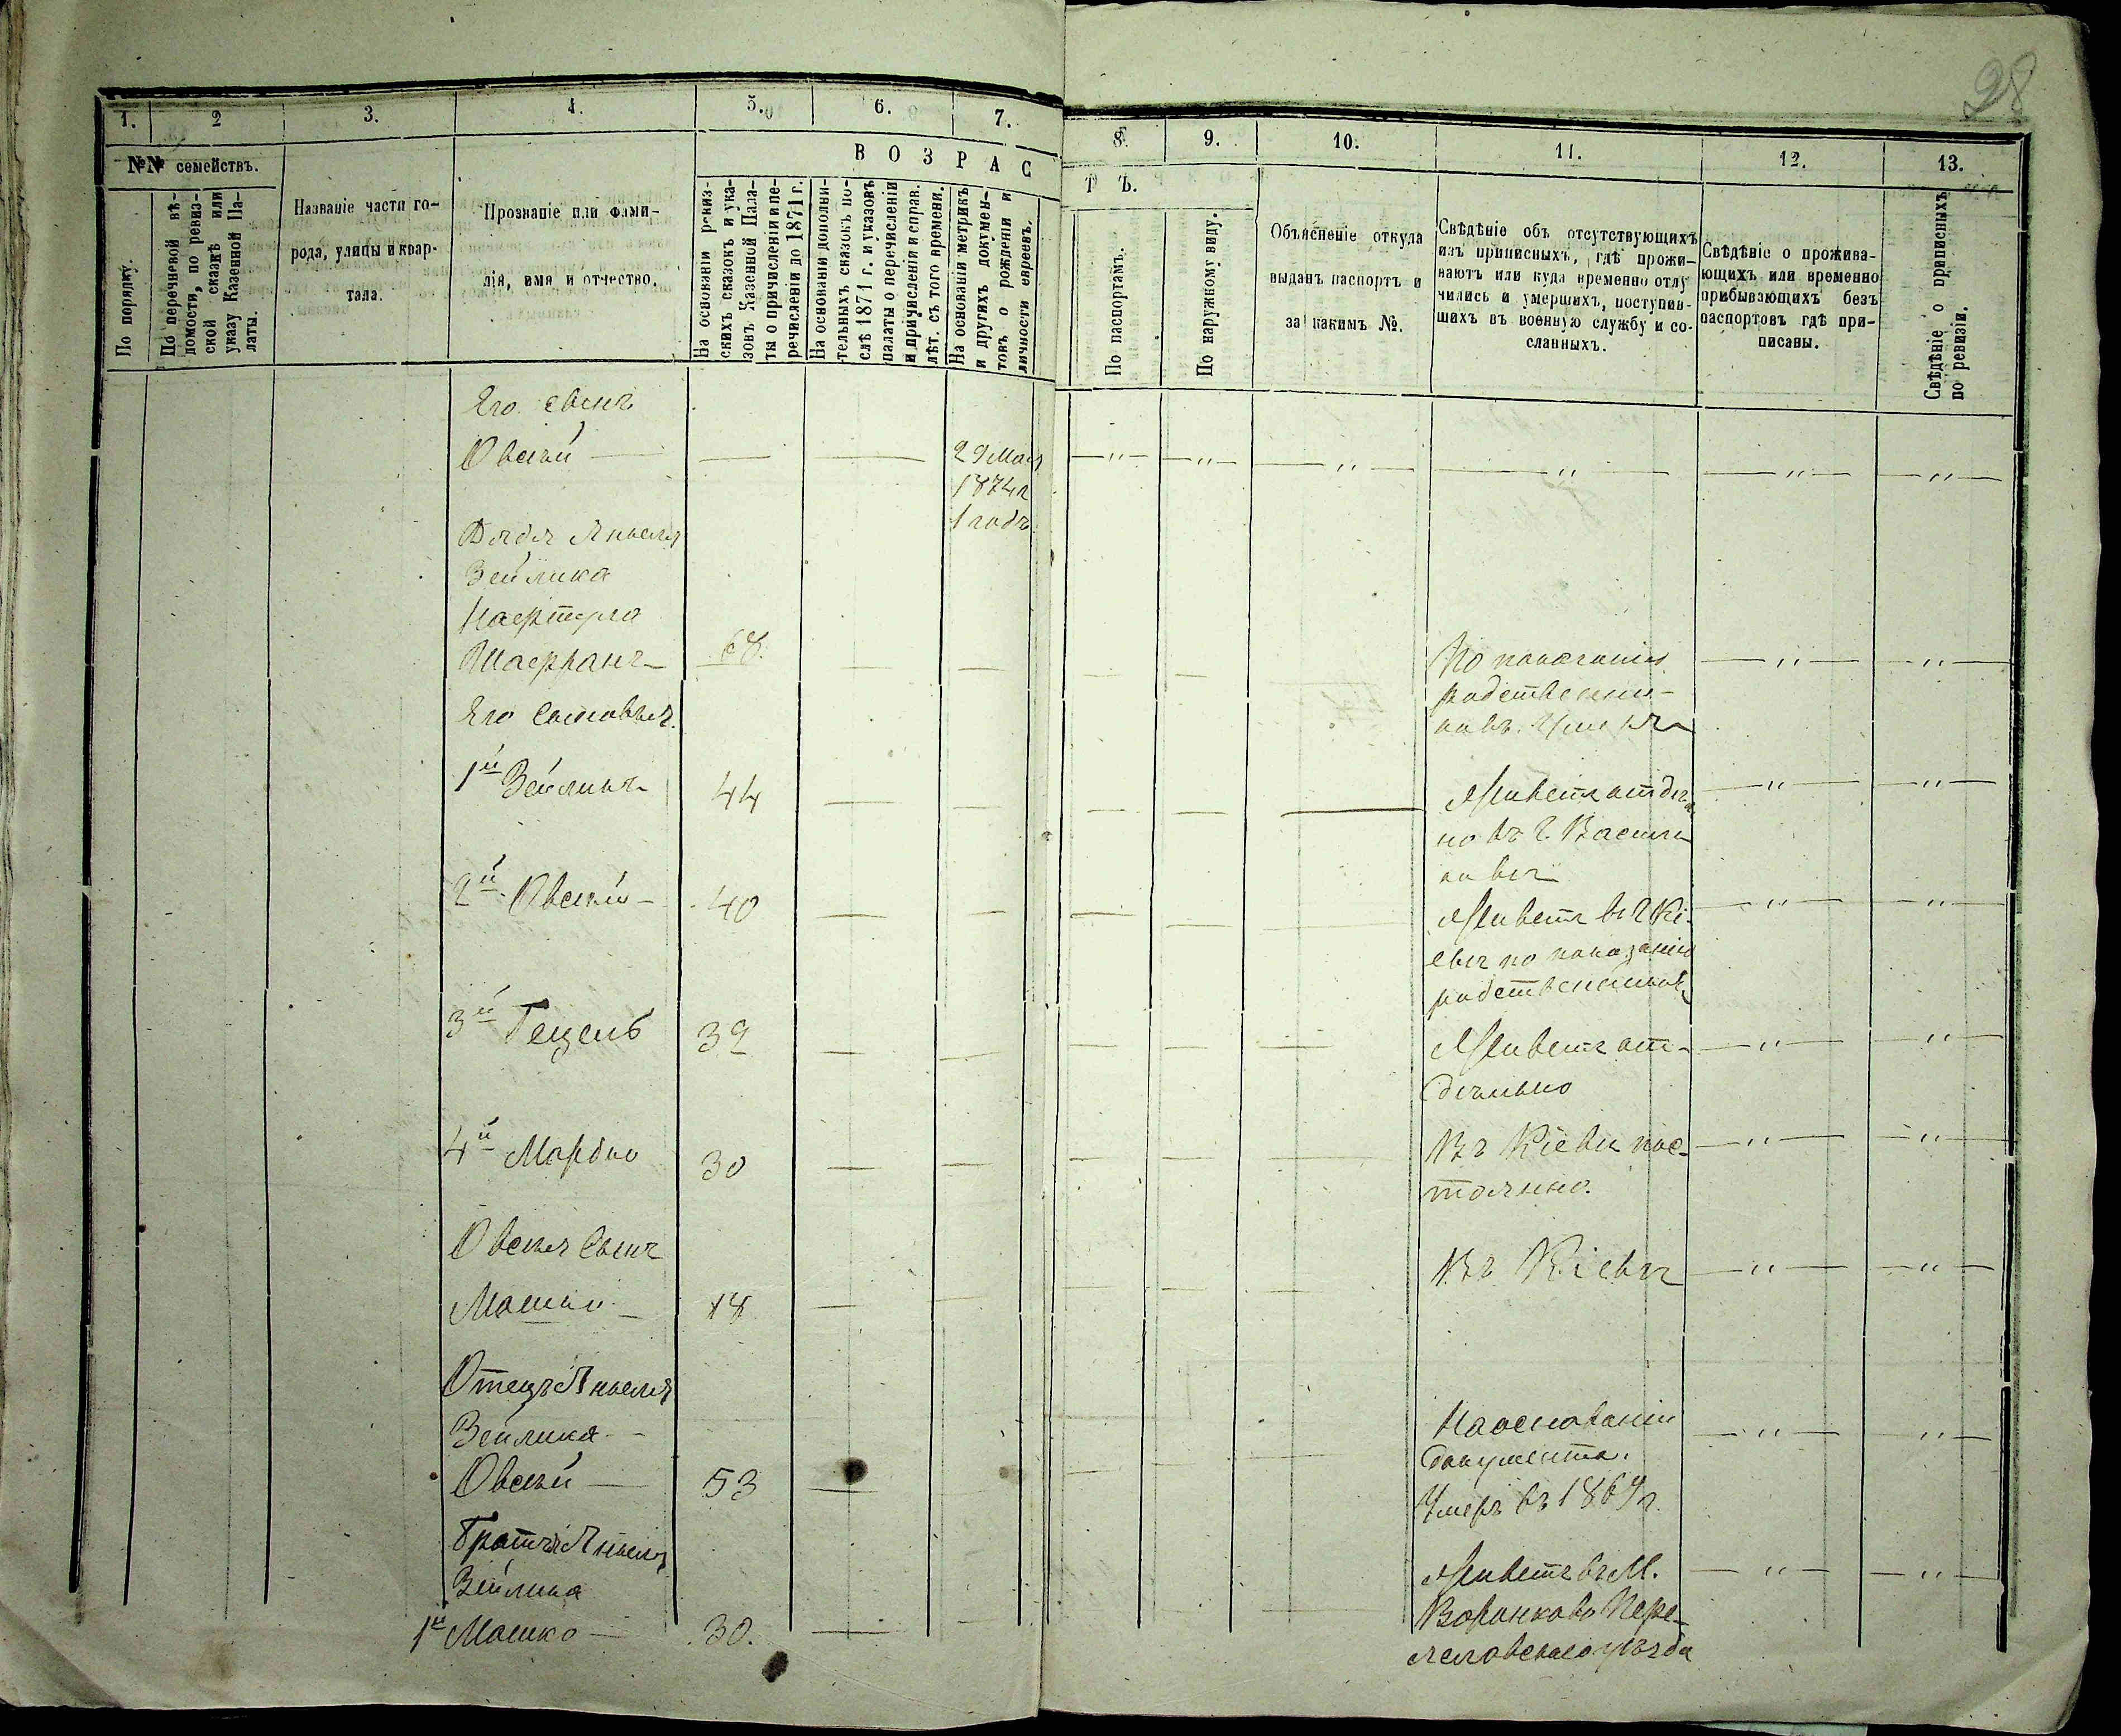 28
1.
2
3.
4.
5.
6.
7.
8.
9.
10.
11.
12.
13.
№№ семействъ.
По порядку.
По перечневой вѣ-
домости, по ревиз-
ской сказкѣ или
указу Казенной Па-
латы.
Названіе части го-
рода, улицы и квар-
тала.
Прозваніе или фами-
лія, имя и отчество.
ВОЗРАС
ТЪ.
На основаніи ревиз-
скихъ сказокъ и ука-
зовъ Казенной Пала-
ты о причисленіи и пе-
речисленіи до 1871 г.
На основаніи дополни-
тельныхъ сказокъ по-
слѣ 1871 г. и указовъ
палаты о перечисленіи
и причисленіи и справ.
лѣт. съ того времени.
На основаніи метрикъ
и другихъ докумен-
товъ о рожденіи и
личности евреевъ.
По паспортамъ.
По наружному виду.
Объясненіе откуда
выданъ паспортъ и
за какимъ №.
Свѣдѣніе объ отсутствующихъ
изъ приписныхъ, гдѣ прожи-
ваютъ или куда временно отлу
чились и умершихъ, поступив-
шихъ въ военную службу и со-
сланныхъ.
Свѣдѣніе о прожива-
ющихъ или временно
прибывающихъ безъ
паспортовъ гдѣ при-
писаны.
Свѣдѣніе о приписныхъ
по ревизіи.
Его сынъ
Овсѣй — — — 29 Мая — " — — " — — " — — " — — " — — " —
1874 г
1 годъ
Дядя Янкеля
Зейлика
Нафтула
Шафранъ — 68. — — — — — По показанію — " — — " —
родственни-
ковъ умеръ
Его сыновья
1й Зейликъ 44 — — — — — Живетъ отдѣл — " — — " —
но въ г. Василь
ковѣ
2й Овсѣй — 40 — — — — — Живетъ въ г Кі- — " — — " —
евѣ по показанію
родственниковъ
3й Гецель 39 — — — — — Живетъ от- — " — — " —
дѣльно
4й Мордко 30 — — — — — Въ Кіевѣ пос- — " — — " —
тоянно.
Овсѣя сынъ
Мошко — 18 — — — — — Въ Кіевѣ — " — — " —
Отецъ Янкеля
Зейлика —
Овсѣй — 53 — — — На основаніи — " — — " —
документа.
Умеръ въ 1869 г.
Братья Янкеля
Зейлика
1й Мошко — 30. — — — Живетъ въ М. — " — — " —
Воронково Пере-
яславскаго уѣзда